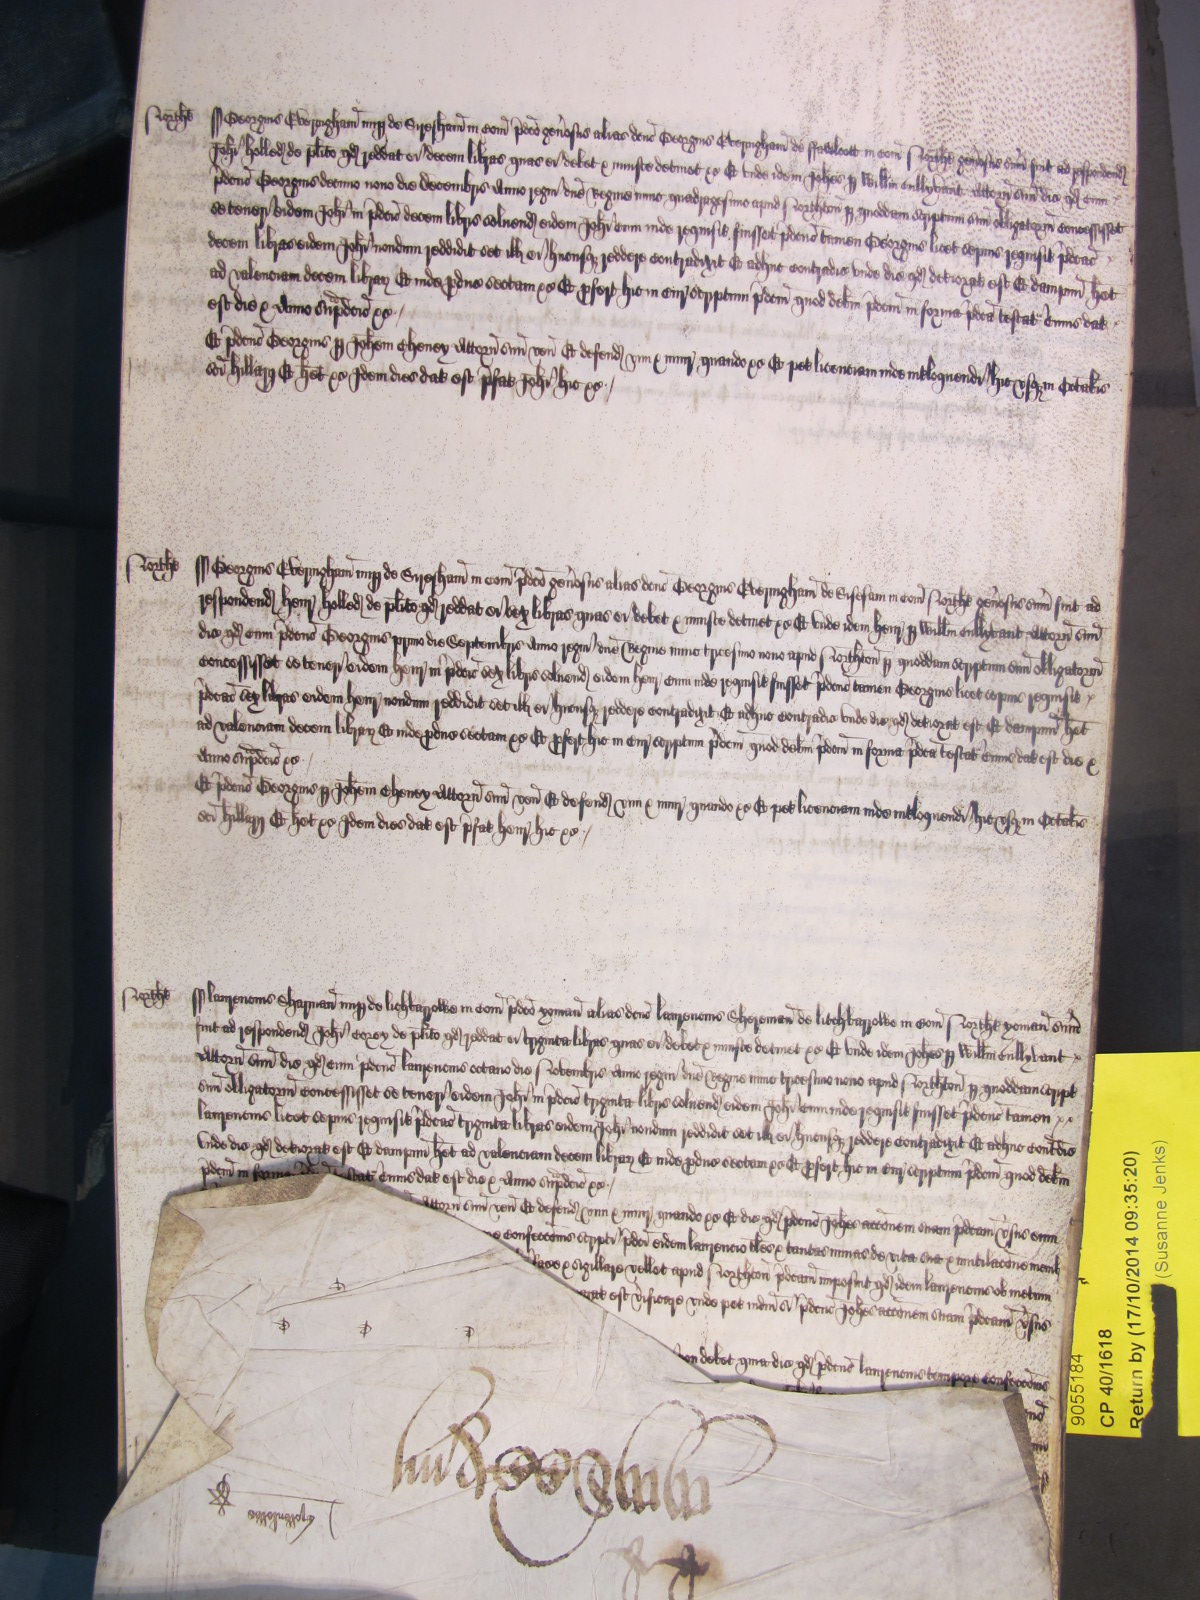 Northt
Georgius Everingham nup de Siresham in com pdco genosus alias dcus Georgius Everingham de in com Northt genosus sum fuit ad respondend
Johi Holled de plito qd reddat ei decem libras quas ei debet & iniuste detinet &c Et unde idem Johes p Willm Cullybrant Attorn suum dic qd cum
pdcus Georgius decimo nono die Decembris Anno regni dne Regine nunc quadragesimo apud Northton p quoddam scriptum suum obligatorm concessisset
se teneri eidem Johi in pdcis decem libris solvend eidem Johi cum inde requisit fuisset pdcus tamen Georgius licet sepius requisit pdcas
decem libras eidem Johi nondum reddidit set ill ei hucusq reddere contradixit Et adhuc contradic unde dic qd deteriorat est Et dampnm het
ad valenciam decem librar Et inde pduc sectam &c Et pfert hic in Cur scriptum pdcm quod debm pdcm in forma pdca testat cuius dat
est die & Anno supdcis &c
Et pdcus Georgius p Johem Cheney Attorn suum ven Et defend vim & iniur quando &c Et pet licenciam inde intloquendi hic usq in Octabis
sci Hillarij Et het &c Idem dies dat est pfat Johi hic &c
Northt
Georgius Everingham nup de Siresham in com pdco genosus alias dcus Georgius Everingham de Sisesam in com Northt genosus sum fuit ad
respondend Henr Holled de plito qd reddat ei sex libras quas ei debet & iniuste detinet &c Et unde idem Henr p Willm Cullybrant Attorn suum
dic qd cum pdcus Georgius primo die Septembris Anno regni dne Regine nunc tricesimo nono apud Northton p quoddam scriptum suum obligatorm
concessisset se teneri eidem Henr in pdcis sex libris solvend eidem Henr cum inde requisit fuisset pdcus tamen Georgius licet sepius requisit
pdcas sex libras eidem Henr nondum reddidit set ill ei hucusq reddere contradixit Et adhuc contradic unde dic qd deteriorat est Et dampnm het
ad valenciam decem librar Et inde pduc sectam &c Et pfert hic in Cur scriptum pdcm quod debm pdcm in forma pdca testat cuius dat est die &
Anno supdcis &c
Et pdcus Georgius p Johem Cheney Attorn suum ven Et defend vim & iniur quando &c Et pet licenciam inde intloquendi hic usq in Octabis
sci Hillarij Et het &c Idem dies dat est pfat Henr hic &c
Northt
Laurencius Sharman nup de Lichbarrowe in com pdco yoman alias dcus Laurencius Shereman de Litchbarrowe in com Northt yoman sum
fuit ad respondend Johi de plito qd reddat ei triginta libras quas ei debet & iniuste detinet &c Et unde idem Johes p Willm Cullybrant
Attorn suum dic qd cum pdcus Laurencius octavo die Novembris Anno regni dne Regine nunc tricesimo nono apud Northton p quoddam script
suum obligatorm concessisset se teneri eidem Johi in pdcis triginta libris solvend eidem Johi cum inde requisit fuisset pdcus tamen
Laurencius licet sepius requisit pdcas triginta libras eidem Johi nondum reddidit set ill ei hucusq reddere contradixit Et adhuc contdic
unde dic qd deteriorat est Et dampnm het ad valenciam decem librar Et inde pduc sectam &c Et pfert hic in Cur scriptum pdcm quod debm
pdcm in forma cuius dat est die & Anno supdcis &c
Attorn suum ven Et defend vim & iniur quando &c Et dic qd pdcus Johes accionem suam pdcam vsus eum
confeccionis scripti pdci eidem Laurencio tales & tantas minas de vita sua & mutilacione memb
& sigillare vellet apud Northton pdcam imposuit qd idem Laurencius ob metum
est vificare unde pet iudm si pdcus Johes accionem suam pdcam vsus
non debet quia dic qd pdcus Laurencius tempore confeccionis
9055184
CP 40/1618
Return by (17/10/2014 09:35:20)
(Susanne Jenks)